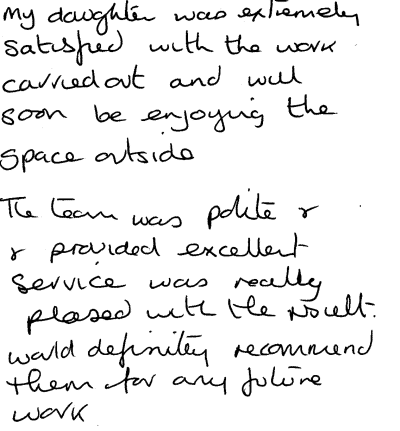 My daughter was extremely
satisfied with the work
carried out and will
soon be enjoying the
space outside
The team was polite &
& provided excellent
service was really
pleased with the result.
would definitely recommend
them for any future
work